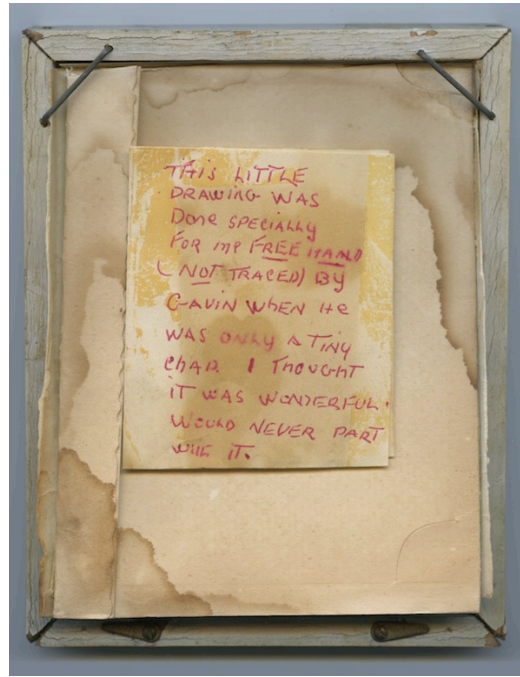 THIS LITTLE
DRAWING WAS
DONE SPECIALLY
FOR ME FREE HAND
(NOT TRACED) BY
GAVIN WHEN HE
WAS ONLY A TINY
CHAP I THOUGHT
IT WAS WONDERFUL.
WOULD NEVER PART
WITH IT.